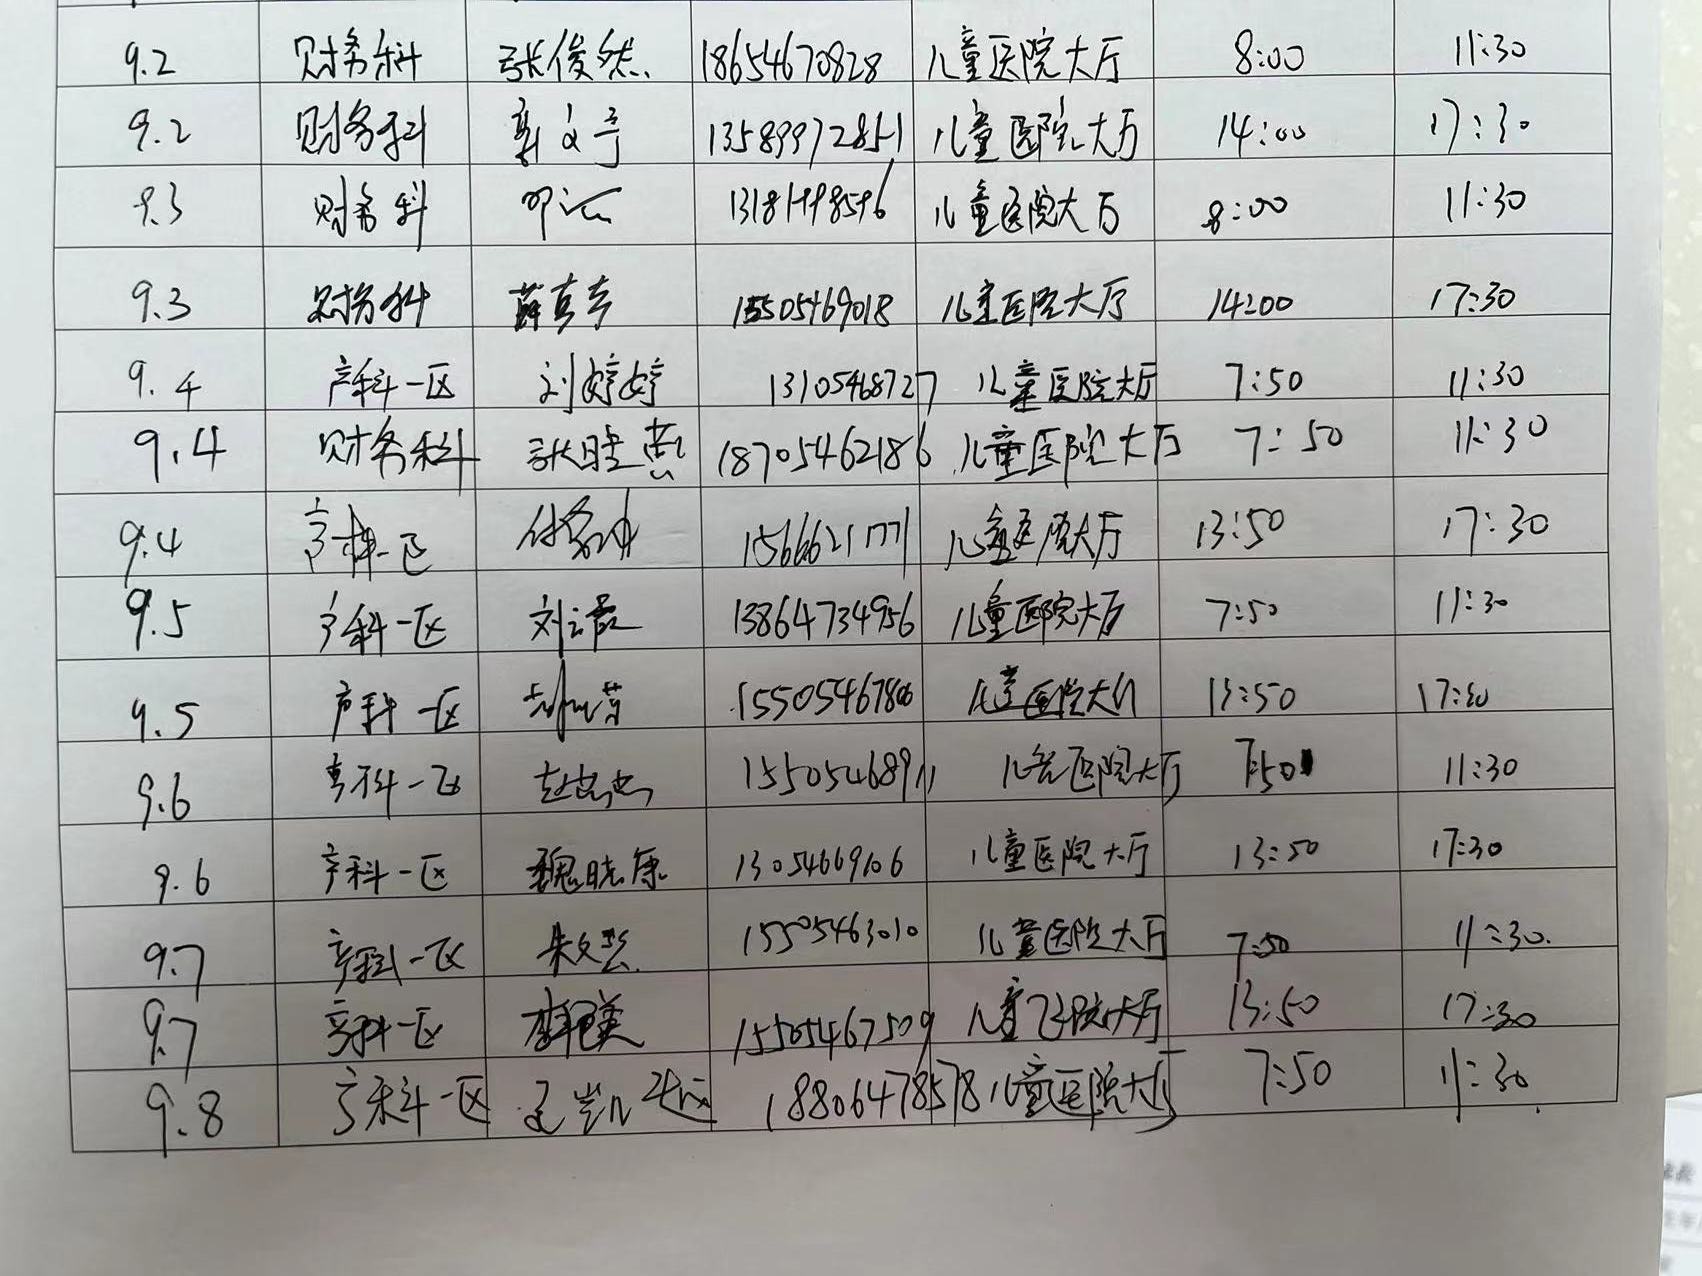 9.2 财务科 张俊然 18654670828 儿童医院大厅 8:00 11:30
9.2 财务科 郭文宇 13589972851 儿童医院大厅 14:00 17:30
9.3 财务科 儿童医院大厅 8:00 11:30
9.3 财务科 薛亭亭 15505469018 儿童医院大厅 14:00 17:30
9.4 产科一区 刘婷婷 13105468727 儿童医院大厅 7:50 11:30
9.4 财务科 18705462186 儿童医院大厅 7:50 11:30
9.4 产科一区 15666211771 儿童医院大厅 13:50 17:30
9.5 产科一区 刘 13864734956 儿童医院大厅 7:50 11:30
9.5 产科一区 儿童医院大厅 13:50 17:30
9.6 产科一区 15505468911 儿童医院大厅 7:50 11:30
9.6 产科一区 魏晓康 13054669106 儿童医院大厅 13:50 17:30
9.7 产科一区 朱文 15505463010 儿童医院大厅 7:50 11:30
9.7 产科一区 15505467509 儿童医院大厅 13:50 17:30
9.8 产科一区 18806478578 儿童医院大厅 7:50 11:30